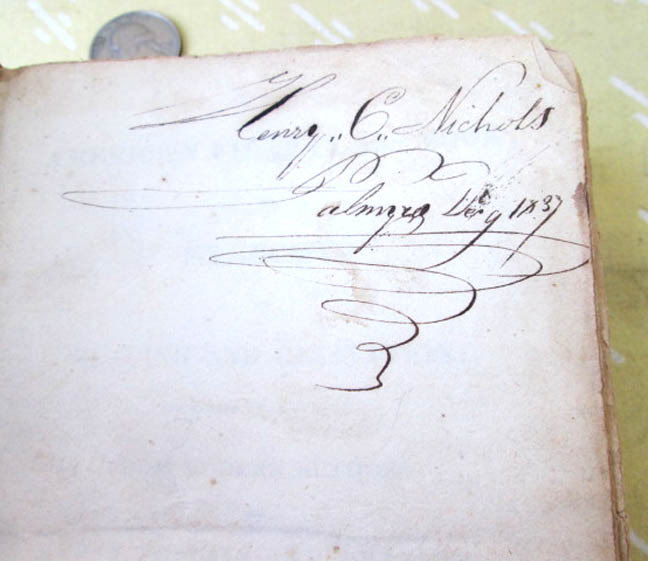 Henry. C. Nichols
Palmyra Dec 9 1837